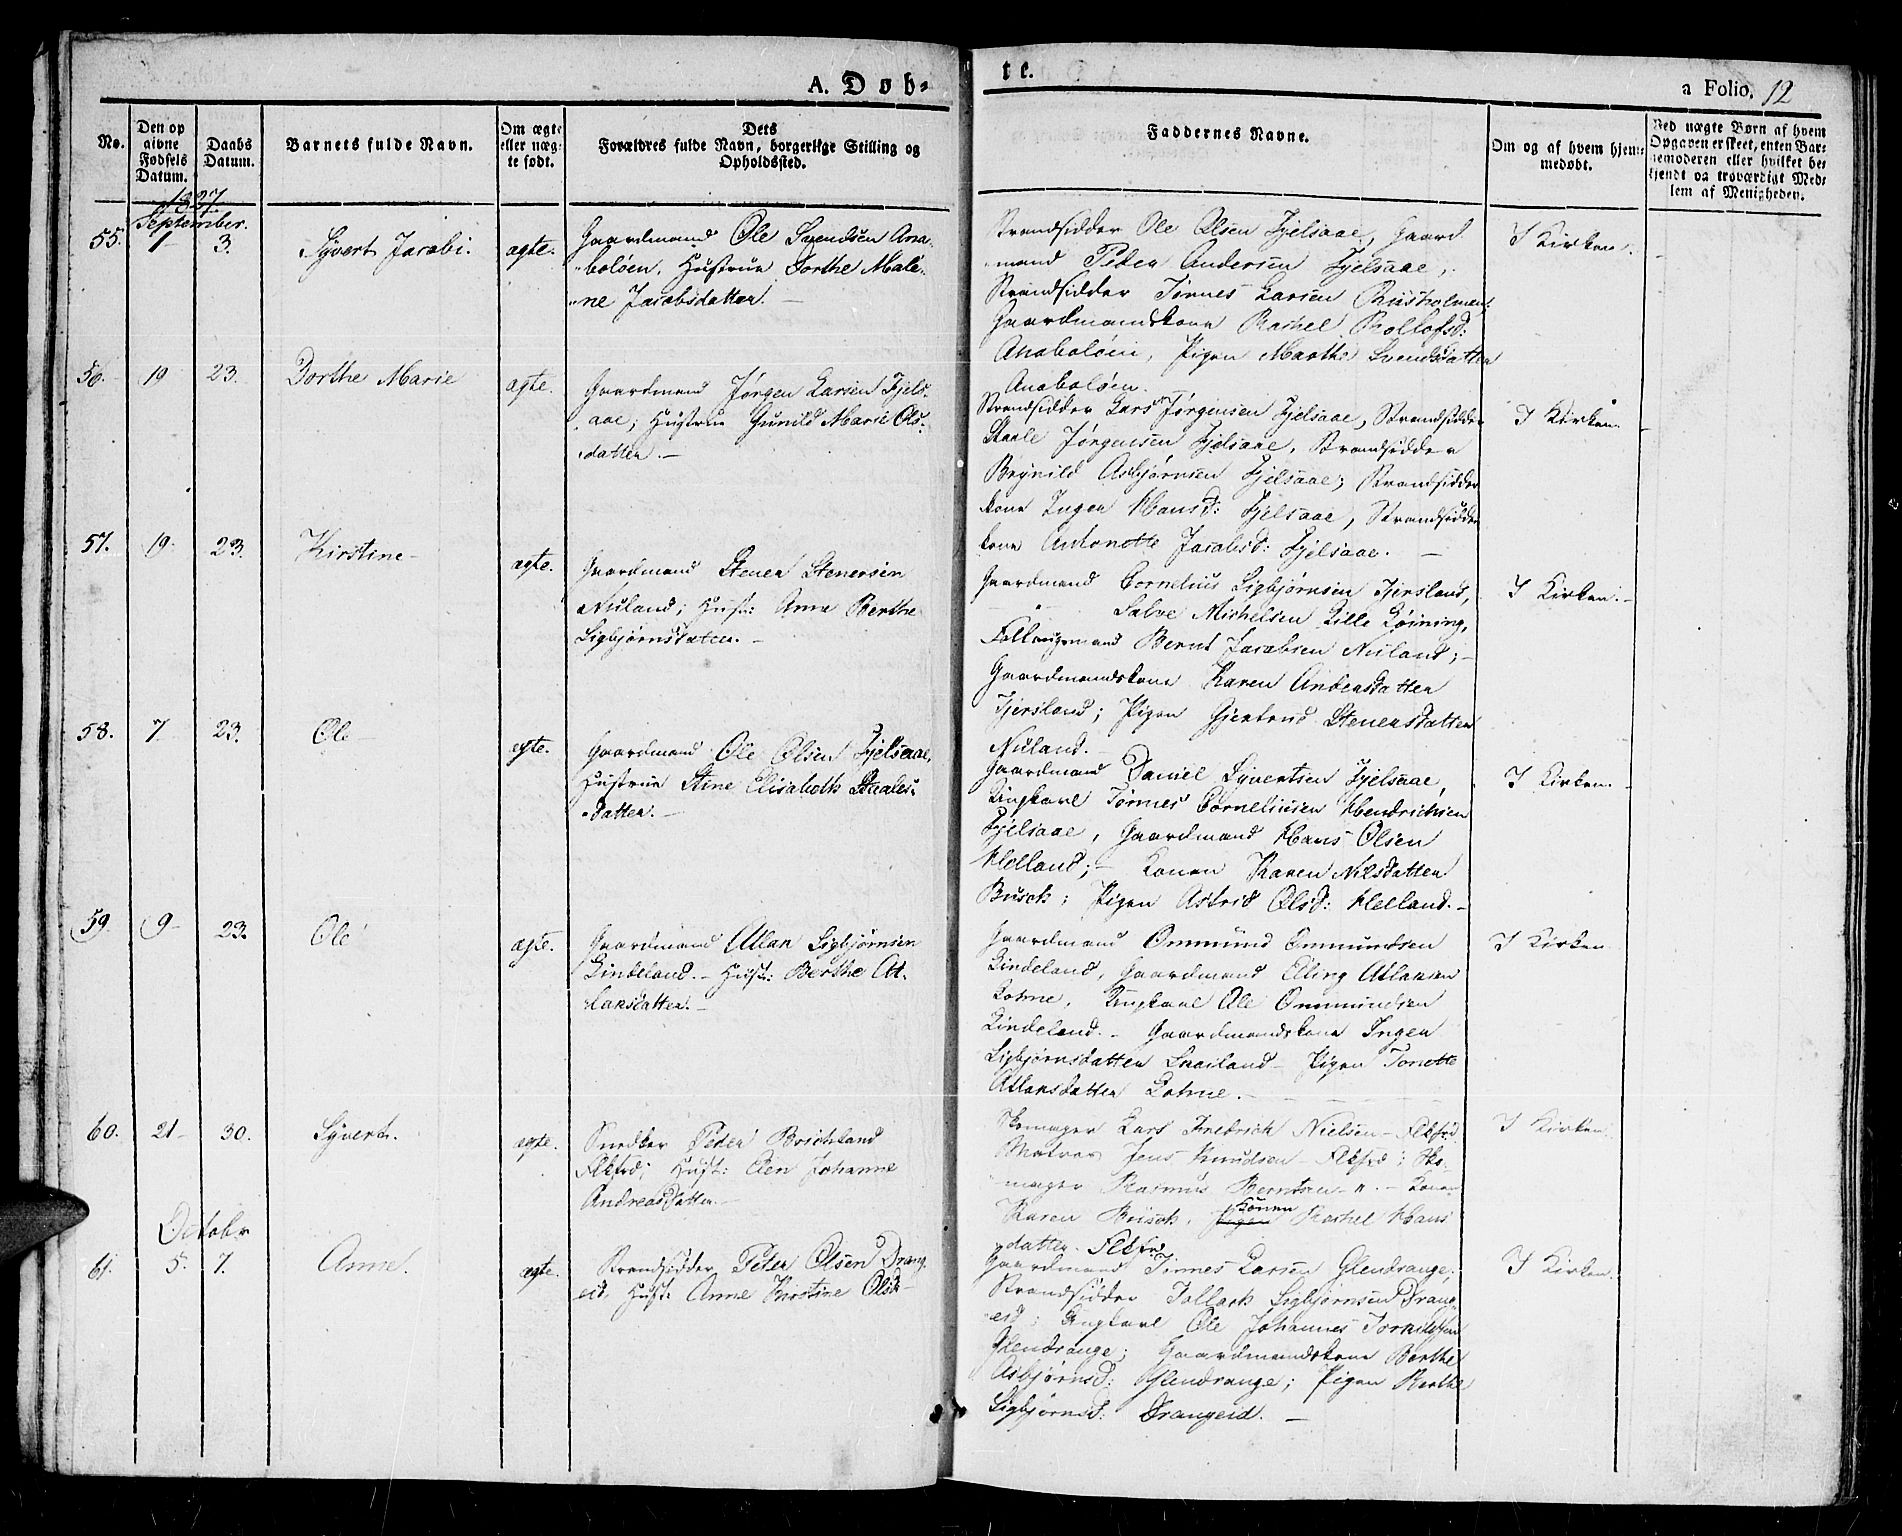 A. Døb-
te.
a Folio. 12
No.
Den op
givne
Fødsels
Datum.
Daabs
Datum.
Barnets fulde Navn.
Om ægte
eller uæg-
te født.
Dets
Forældres fulde Navn, borgerlige Stilling og
Opholdssted.
Faddernes Navne.
Om og af hvem hjem-
medøbt.
Ved uægte Børn af hvem
Opgaven er skeet, enten Bar-
nemoderen eller hvilket be-
kjendt og troværdigt Med-
lem af Menigheden.
1827
September.
55. 1 3. Syvert Jacobi. ægte.
Gaardmand Ole Svendsen Ana-
beløen. Hustrue Dorthe Male-
ne Jacobsdatter. —
Strandsidder Ole Olsen Fjelsaae, Gaard
mand Peder Andersen Fjelsaae,
Strandsidder Tønnes Larsen
Gaardmandskone Rachel Rollofsd:
Anabeløen, Pigen Marthe Svendsdatter
Anabeløen.
I Kirken.
56. 19 23. Dorthe Marie ægte.
Gaardmand Jørgen Larsen Fjels-
aae; Hustrue Gunild Marie Ols-
datter. —
Strandsidder Lars Jørgensen Fjelsaae, Strandsidder
Staale Jørgensen Fjelsaae, Strandsidder
Brynild Asbjørnsen Fjelsaae; Strandsidder
kone Inger Hansd: Fjelsaae, Strandsidder
kone Antonette Jacobsd: Fjelsaae. —
I Kirken.
57. 19. 23. Kirstine ægte.
Gaardmand Stener Stenersen
Nuland; Hust: Anne Berthe
Sigbjørnsdatter. —
Gaardmand Cornelius Sigbjørnsen Fjersland,
" Salve Michelsen Lille Løining,
Bernt Jacobsen Nuland; —
Gaardmandskone Karen Andersdatter
Fjersland; Pigen Gjertrud Stenersdatter
Nuland. —
I Kirken. —
58. 7 23. Ole ægte.
Gaardmand Ole Olsen Fjelsaae,
Hustrue Stine Elisabeth Staales-
datter. —
Gaardmand Daniel Syvertsen Fjelsaae,
Ungkarl Tønnes Corneliusen Hendrichsen
Fjelsaae, Gaardmand Hans Olsen
Helland; — Konen Karen Nilsdatter
Busch; Pigen Astrid Olsd: Helland. —
I Kirken.
59. 9 23. Ole ægte.
Gaardmand Atlak Sigbjørnsen
Lindeland. — Hust: Berthe At-
laksdatter. —
Gaardmand Ommund Ommundsen
Lindeland, Gaardmand Eling Atlaksen
Lohne, Ungkarl Ole Ommundsen
Lindeland. — Gaardmandskone Inger
Sigbjørnsdatter — Pigen Tonette
Atlaksdatter Lohne. —
I Kirken.
60. 21 30. Syvert. ægte.
Snedker Peder Brichland
Flkfrd; Hust: Elen Johanne
Andreasdatter. —
Skomager Lars Fredrich Nielsen — Flkfrd
Matros Jens Knudsen — Flkfrd; Sko-
mager Rasmus Berntsen — " — Konen
Karen Busch. Pigen Konen Rachel Hans
datter. Flkfrd
I Kirken.
Octobr
61. 5. 7. Anne. ægte.
Strandsidder Peter Olsen Drang
eid. Hust: Anne Kirstine Olsd
Gaardmand Tønnes Larsen Glendrange;
Strandsidder Tollach Sigbjørnsen Drang-
eid; Ungkarl Ole Johannes Torkildsen
Glendrange; Gaardmandskone Berthe
Asbjørnsd: Glendrange; Pigen Berthe
Sigbjørnsd: Drangeid. —
I Kirken.